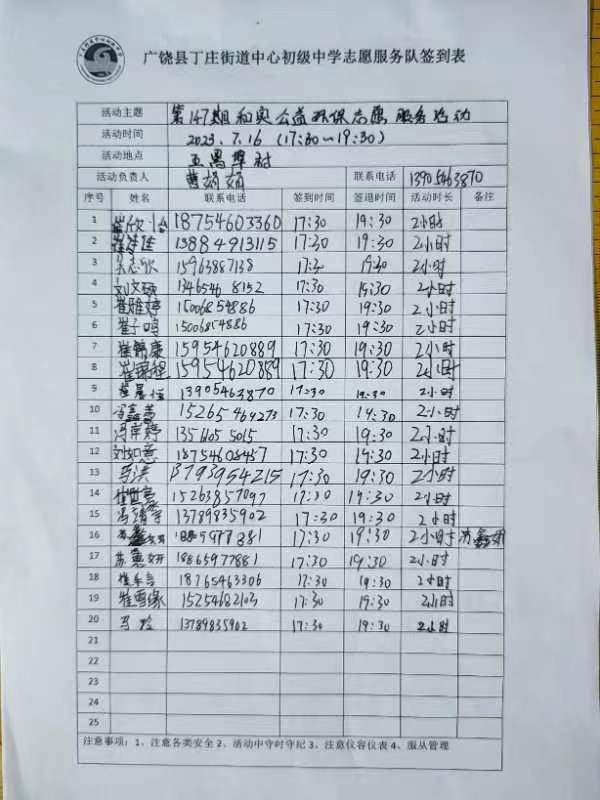 广饶县丁庄街道中心初级中学志愿服务队签到表
活动主题 第147期和奥公益环保志愿服务活动
活动时间 2023.7.16 (17:30~19:30)
活动地点 村
活动负责人 曹娟娟 联系电话 13905463870
序号 姓名 联系电话 签到时间 签退时间 活动时长 备注
1 18754603360 17:30 19:30 2小时
2 13884913115 17:30 19:30 2小时
3 15963887138 17:30 19:30 2小时
4 刘文硕 1346546 8152 17:30 19:30 2小时
5 崔雅婷 15006854886 17:30 19:30 2小时
6 崔子鸣 15006854886 17:30 19:30 2小时
7 崔锦康 15954620889 17:30 19:30 2小时
8 崔锦程 15954620889 17:30 19:30 2小时
9 13905463870 17:30 19:30 2小时
10 15265464273 17:30 19:30 2小时
11 冯 婷 17:30 19:30 2小时
12 刘如意 18754608487 17:30 19:30 2小时
13 马洪 13793954215 17:30 19:30 2小时
14 15263857097 17:30 19:30 2小时
15 冯靖宇 13789835902 17:30 19:30 2小时
16 17:30 19:30 2小时
17 妍 18865977881 17:30 19:30 2小时
18 18765463306 17:30 19:30 2小时
19 崔雪缘 15254682103 17:30 19:30 2小时
20 马玲 13789835902 17:30 19:30 2小时
21
22
23
24
25
注意事项：1、注意各类安全 2、活动中守时守纪 3、注意仪容仪表 4、服从管理